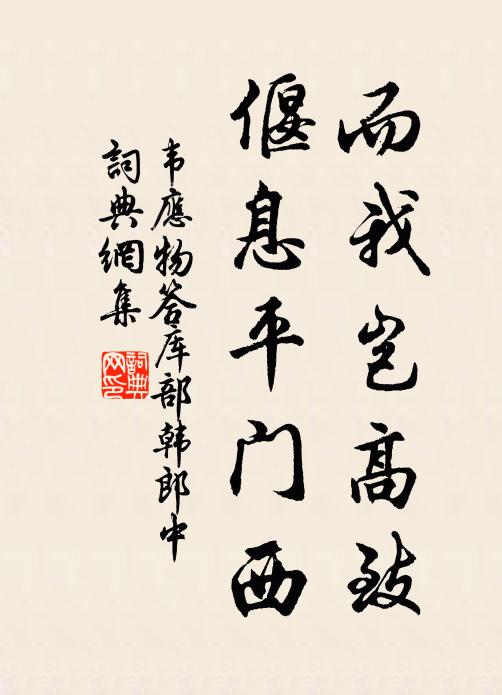 而我岂高致
偃息平门西
韦應物答库部韩郎中
詞典網集
詞典
网印